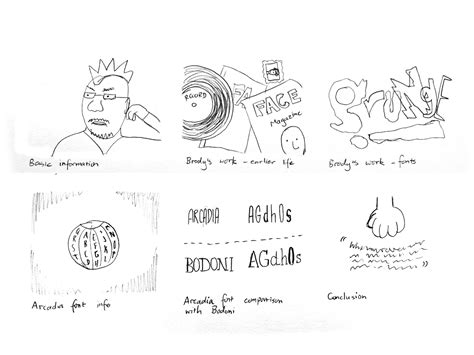 RECORD
FA
FACE
Magazine
Grunge
Basic information
Brody's work - earlier life
Brody's work - fonts
ARCADIA AGdhOs
BODONI AGdhOs
Arcadia font info
Arcadia font comparison
with Bodoni
Conclusion